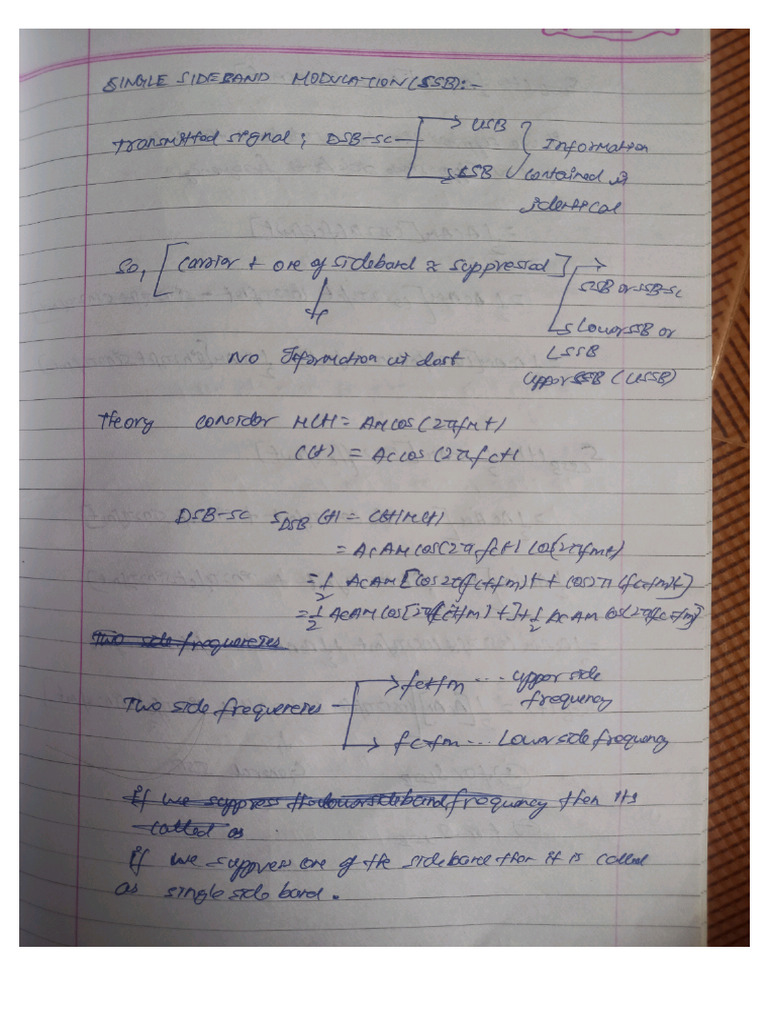 SINGLE SIDEBAND MODULATION (SSB):-
Transmitted signal; DSB-SC → USB
→ LSB
Information
contained is
identical
So, [Carrier + one of sideband is suppressed] → SSB or SSB-SC
→ Lower SSB or
LSSB
Upper SSB (USSB)
No Information is lost
Theory consider M(t) = AM cos (2πfmt)
C(t) = Ac cos (2πfct)
DSB-SC SDSB (t) = C(t) M(t)
= Ac AM cos (2πfct) cos (2πfmt)
= 1/2 Ac AM [cos 2π(fc+fm)t + cos 2π (fc+fm)t]
= 1/2 Ac AM cos [2π(fc+fm)t] + 1/2 Ac AM cos (2πfc+fm)
Two side frequencies
Two side frequencies → fc+fm ... Upper side
frequency
→ fc+fm ... Lower side frequency
If we suppress the lower sideband frequency then its
called as
If we suppress one of the sideband then it is called
as single side band.